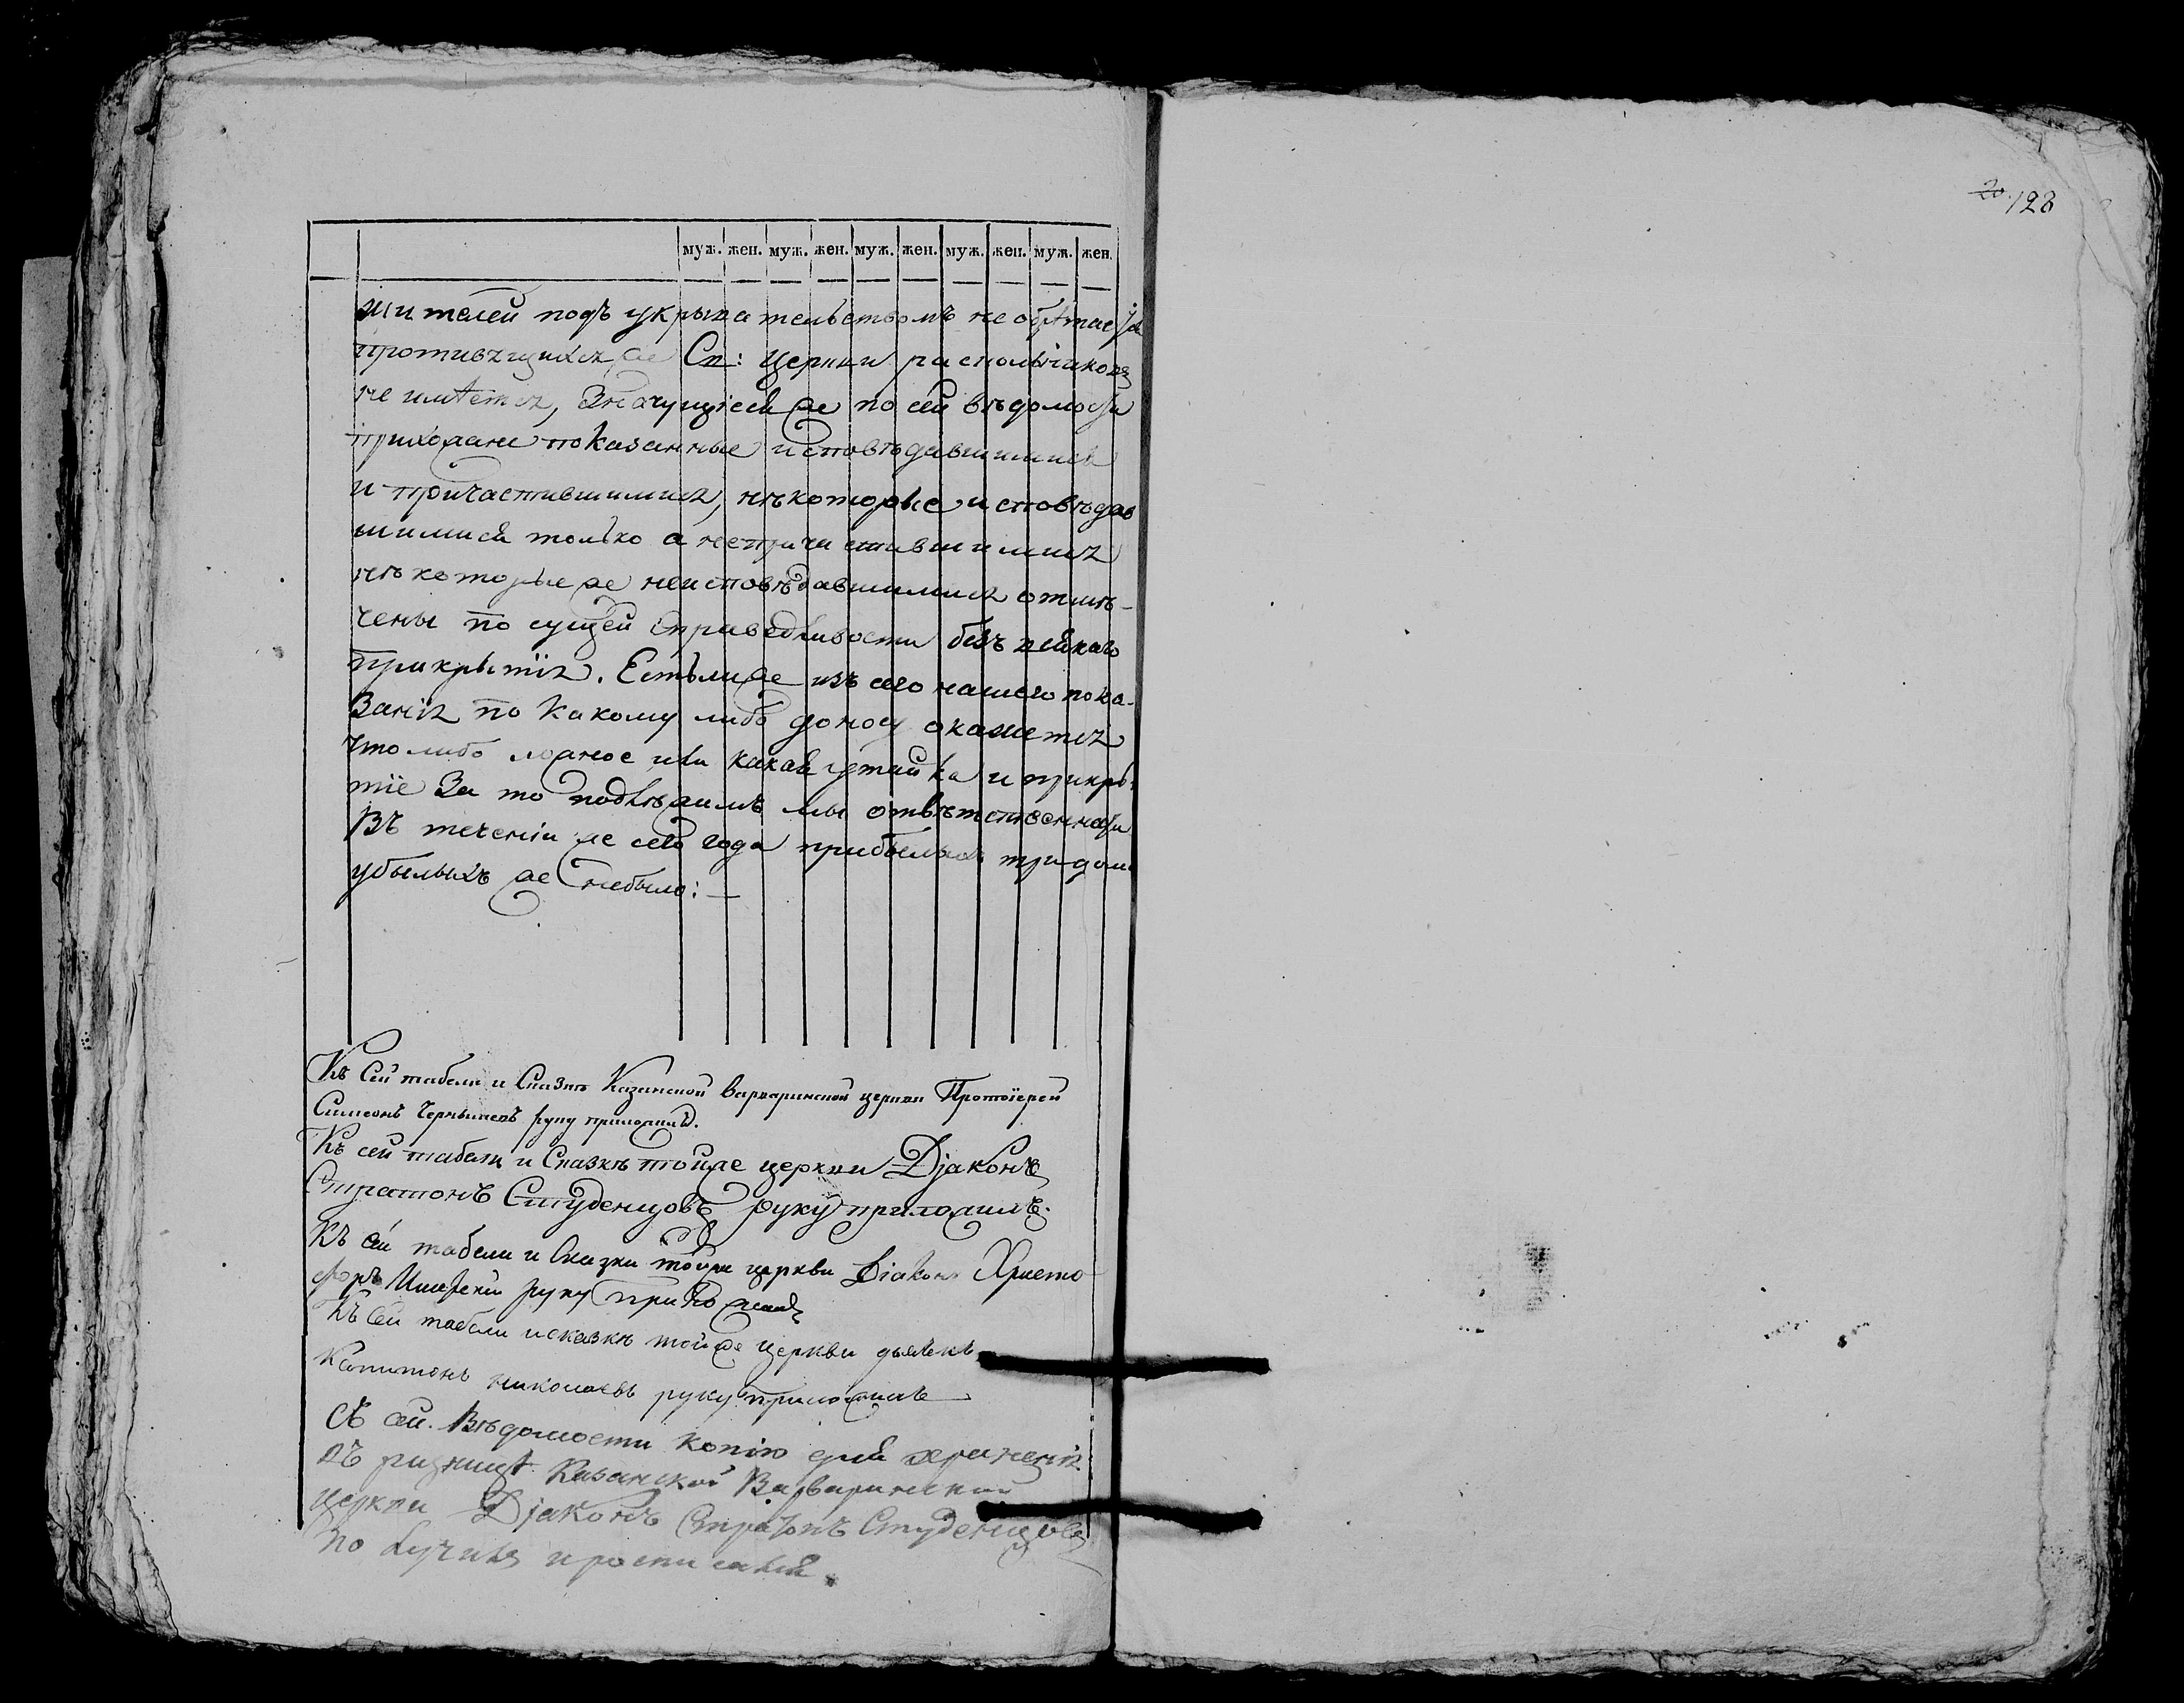 20. 128
муж. жен. муж. жен. муж. жен. муж. жен. муж. жен.
жителей подъ укрывательствомъ не обѣтается
противящихся же Св: церкви раскольниковъ
не имѣется, значущіеся же по сей вѣдомости
прихожане показанные исповѣдавшимися
и причастившимися, нѣкоторые исповѣдав
шимися только а непричастившимися
нѣкоторые же неисповѣдавшимися отмѣ-
чены по сущей справедливости безъ всякаго
прикрытія. Естьли же изъ сего нашего пока-
занія по какому либо доносу окажется
что либо ложное или какая утайка и прикры-
тіе за то подлѣжимъ мы отвѣтственности
Въ теченіи же сего года прибылыхъ три дома
убылыхъ же небыло: —
Къ сей табели и Сказкѣ Казанской Варваринской церкви Протоіерей
Симеонъ Чернышевъ руку приложилъ.
Къ сей табели и Сказкѣ тойже церкви Діаконъ
Стратонъ Студенцовъ руку приложилъ.
Къ сей табели и Сказки тойже церкви Діаконъ Христо
форъ руку приложилъ
Къ сей табели и сказкѣ тойже церкви дьячекъ
Капитонъ николаевъ руку приложилъ
Съ сей Вѣдомости копію для храненія
въ ризницѣ Казанской Варваринской
церкви Діаконъ Стратонъ Студенцовъ
получилъ и росписался.